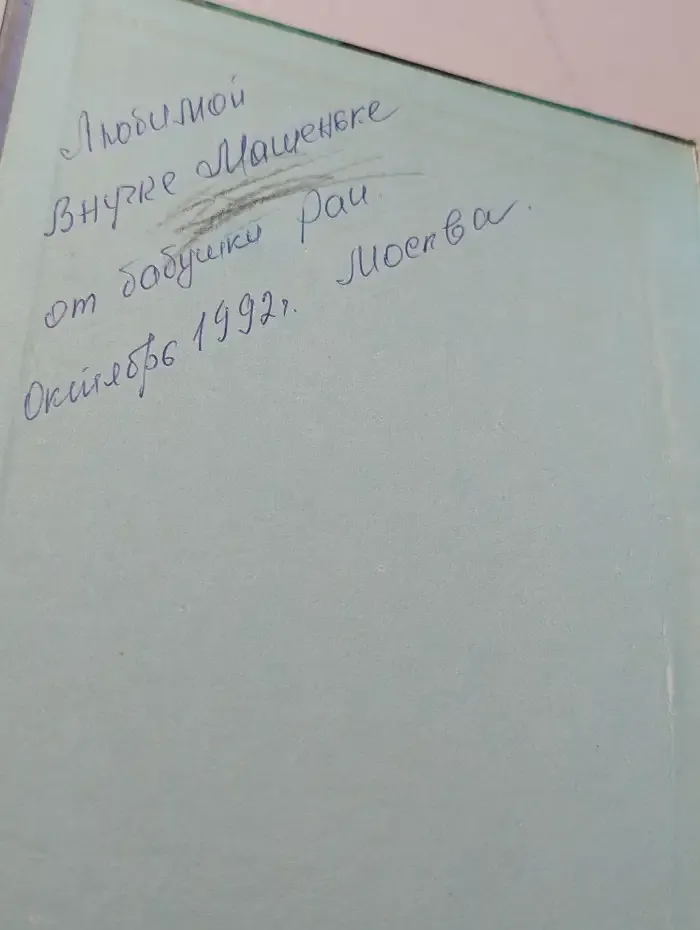 Любимой
Внучке Машеньке
от бабушки Раи.
Октябрь 1992г. Москва.